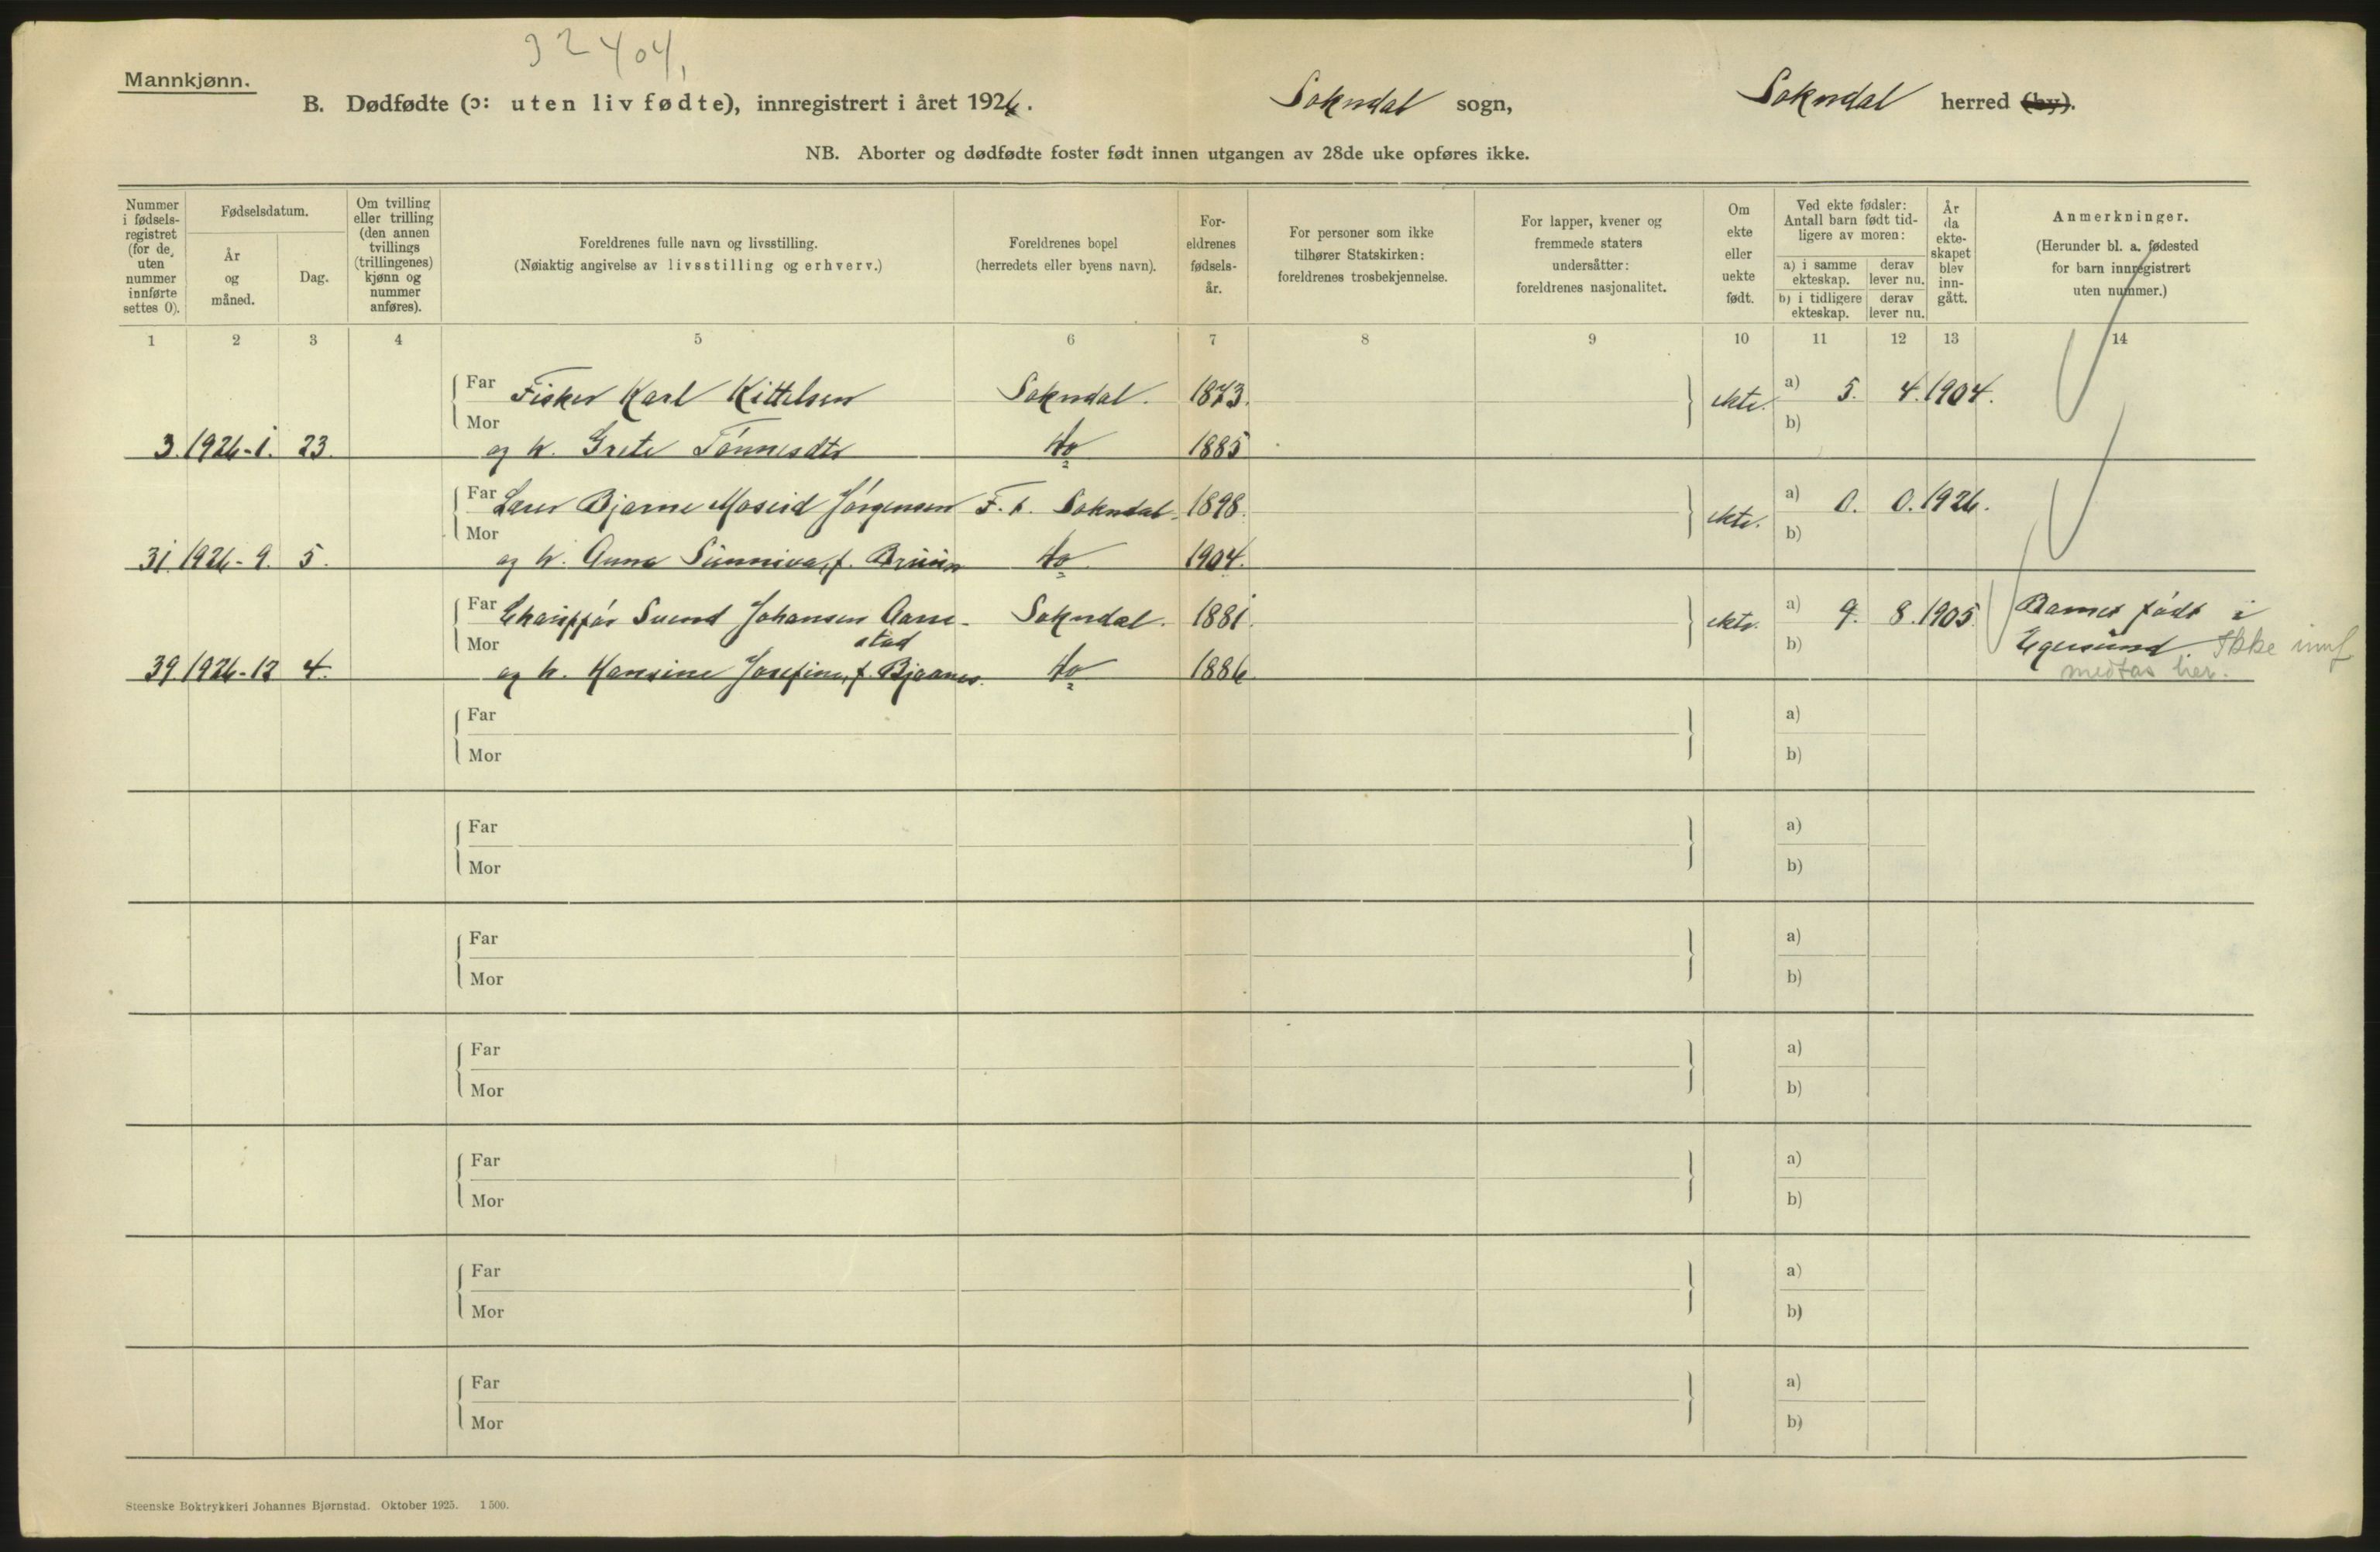 32404,
Mannkjønn.
B. Dødfødte (ɔ: uten liv fødte), innregistrert i året 1926. Sokndal sogn, Sokndal herred (by).
NB. Aborter og dødfødte foster født innen utgangen av 28de uke opføres ikke.
Nummer i fødsels- registret (for de uten nummer innførte settes 0).
Fødselsdatum.
År og måned.
Dag.
Om tvilling eller trilling (den annen tvillings (trillingenes) kjønn og nummer anføres).
Foreldrenes fulle navn og livsstilling.
(Nøiaktig angivelse av livsstilling og erhverv.)
Foreldrenes bopel
(herredets eller byens navn).
For- eldrenes fødsels- år.
For personer som ikke tilhører Statskirken: foreldrenes trosbekjennelse.
For lapper, kvener og fremmede staters undersåtter: foreldrenes nasjonalitet.
Om ekte eller uekte født.
Ved ekte fødsler: Antall barn født tid- ligere av moren:
a) i samme ekteskap. derav lever nu.
b) i tidligere ekteskap. derav lever nu.
År da ekte- skapet blev inn- gått.
Anmerkninger.
(Herunder bl. a. fødested for barn innregistrert uten nummer.)
1 2 3 4 5 6 7 8 9 10 11 12 13 14
Far Fisker Karl Kittelsen Sokndal. 1873. ekte. a) 5. 4. 1904.
Mor b)
3. 1926-1. 23. og h. Grete Tönnesdtr do 1885
Far Lærer Bjarne Moseid Jörgensen F. h. Sokndal. 1898. ekte. a) 0. 0. 1926.
Mor b)
31 1926-9. 5. og h. Anna Sunniva, f. do 1904.
Far Svend Johansen Aare- Sokndal. 1881. ekte. a) 9. 8. 1905 Barnet födt i
Mor stad b) Egersund. Ikke
39 1926-12 4. og h. Hansine Josefine, f. Bjaanes. do 1886 medtas her.
Far a)
Mor b)
Far a)
Mor b)
Far a)
Mor b)
Far a)
Mor b)
Far a)
Mor b)
Far a)
Mor b)
Far a)
Mor b)
Steenske Boktrykkeri Johannes Bjørnstad. Oktober 1925. 1500.